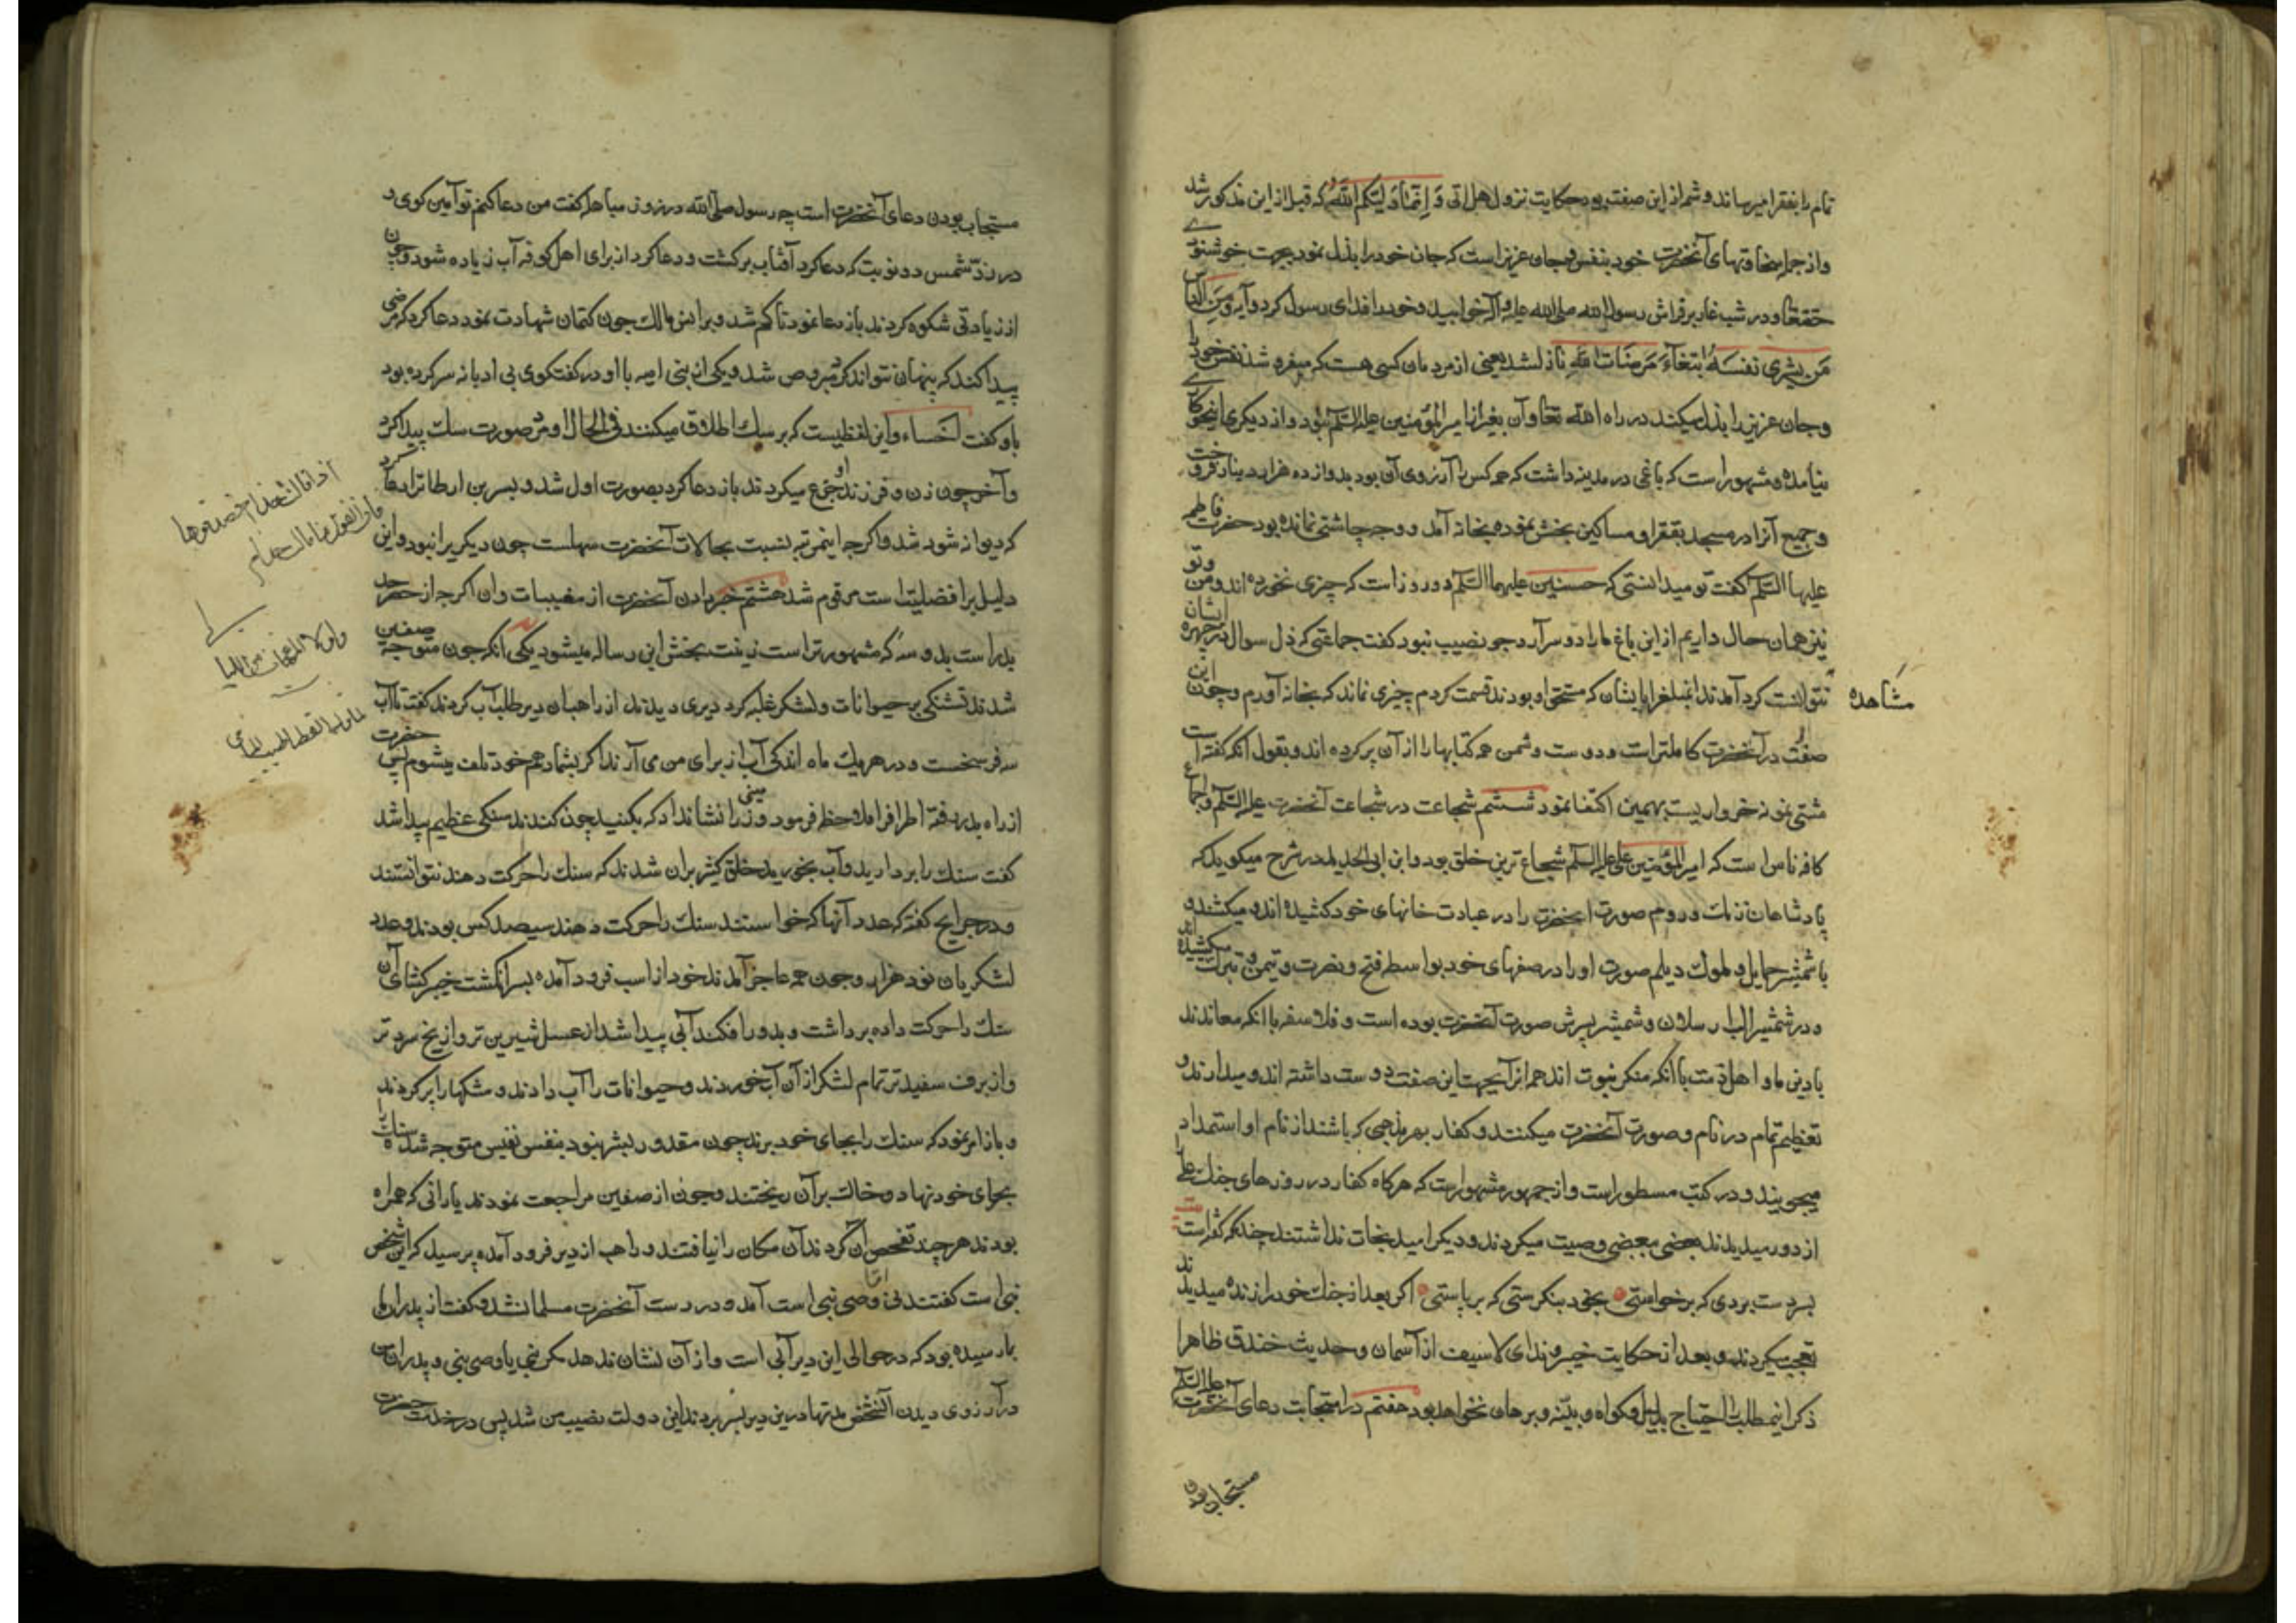 تمام را بفقرا میرساند و شمهٔ از این صفت بود حکایت نزول هل اتی و انما ولیکم الله که قبل از این مذکور شد
و از جمله سخاوتهای آنحضرت خود بنفس و جان عزیز است که جان خود را بذل نمود بجهت خوشنودی
حقتعالی و در شب غار بر فراش رسول الله صلی الله علیه و آله خوابید و خود را فدای رسول کرد و آیه و من الناس
من یشری نفسه ابتغاء مرضات الله نازل شد یعنی از مردمان کسی هست که میفروشد نفس خود را
و جان عزیز را بذل میکند در راه الله تعالی و آن بغیر از امیرالمؤمنین علیه السلم نبود و از دیگری اینچنین
نیامده و مشهور است که باغی در مدینه داشت که همه کس را آرزوی آن بود بدوازده هزار دینار فروخت
و جمیع آنرا در مسجد بفقرا و مساکین بخش نموده بخانه آمد و وجه چاشتی نمانده بود حضرت فاطمه
علیها السلم گفت تو میدانستی که حسنین علیهما السلم دو روز است که چیزی نخورده اند و من و تو
نیز همان حال داریم از این باغ ما را دو سر آرد جو نصیب نبود گفت جماعتی که ذل سوال در چهره ایشان
مشاهده
نتوانست کرد آمدند این مبلغ را بایشان که مستحق او بودند قسمت کردم چیزی نماند که بخانه آورم و چون این
صفت در آنحضرت کاملتر است و دوست و دشمن همه کتابها را از آن پر کرده اند و بقول آنکه گفته است
مشتی نمونه خرواریست بهمین اکتفا نمود ششم شجاعت در شجاعت آنحضرت علیه السلم و اجماع
کافه ناس است که امیرالمؤمنین علی علیه السلم شجاع ترین خلق بود و ابن ابی الحدید در شرح میگوید که
پادشاهان فرنك و روم صورت آنحضرت را در عبادت خانهای خود کشیده اند و میکشند و
با شمشیر حمایل و ملوك دیلم صورت او را در صفهای خود بواسطه فتح و نصرت و تیمن و تبرك میکشیده اند
و در شمشیر الب ارسلان و شمشیر پسرش صورت آنحضرت بوده است و فلاسفه با آنکه معاندند
با دین ما و اهل ذمت با آنکه منکر نبوت اند همه از آنجهت این صفت دوست داشته اند و میدارند و
تعظیم تمام در نام و صورت آنحضرت میکنند و کفار بهر مذهبی که باشند از نام او استمداد
میجویند و در کتب مسطور است و از جمهور مشهور است که هرگاه کفار در روزهای جنك علی را
از دور میدیدند بعضی ببعضی وصیت میکردند و دیگر امید نجات نداشتند چنانکه گفته است
بسر دست بردی که برخواستی بخود بنگرستی که بر پاستی اگر بعد از جنك خود را زنده میدیدند
تعجب میکردند و بعد از حکایت خیبر و ندای لا سیف از آسمان و حدیث خندق ظاهرا
ذکر اینمطلب را احتیاج بدلیل و گواه و بینه و برهان نخواهد بود هفتم در استجابت دعای آنحضرت علیه السلم
مستجاب بودن
مستجاب بودن دعای آنحضرت است چه رسول صلی الله در روز مباهله گفت من دعا کنم تو آمین گوی و
در رد شمس دو نوبت که دعا کرد آفتاب برگشت و دعا کرد از برای اهل کوفه آب زیاده شود و چون
از زیادتی شکوه کردند باز دعا نمود تا کم شد و بر انس مالك چون کتمان شهادت نمود دعا کرد که مرضی
پیدا کند که پنهان نتواند کرد مبروص شد و یکی از بنی امیه با او در گفتگوی بی ادبانه سر کرده بود
باو گفت اخساء و این لفظیست که بر سك اطلاق میکنند فی الحال او در صورت سك پیدا کرد
و آخر چون زن و فرزند او جزع میکردند باز دعا کرد بصورت اول شد و بسر بن ارطاة را دعا کرد
که دیوانه شود شد و اگرچه اینمرتبه نسبت بحالات آنحضرت سهلست چون دیگریرا نبود و این
دلیل بر افضلیتست مرقوم شد هشتم خبر دادن آنحضرت از مغیبات و آن اگرچه از حد حصر
بدر است بدو سه که مشهورتر است زینت بخش این رساله میشود یکی آنکه چون متوجه صفین
شدند تشنگی بر حیوانات و لشکر غلبه کرد دیری دیدند از راهبان دیر طلب آب کردند گفت تا آب
سه فرسخست و در هر یك ماه اندکی آب از برای من می آرند اگر بشما دهم خود تلف میشوم پس حضرت
از راه بدر رفته اطراف را ملاحظه فرمود و زمینی را نشان داد که بکنید چون کندند سنگی عظیم پیدا شد
گفت سنك را بردارید و آب بخورید خلق کثیر بر آن شدند که سنك را حرکت دهند نتوانستند
و در جرایح گفته که عدد آنها که خواستند سنك را حرکت دهند سیصد کس بودند و عدد
لشکریان نود هزار و چون همه عاجز آمدند خود از اسب فرود آمده بسر انگشت خیبر گشای آن
سنك را حرکت داده برداشت و بدور افکند آبی پیدا شد از عسل شیرین تر و از یخ سردتر
و از برف سفیدتر تمام لشکر از آن آب خوردند و حیوانات را آب دادند و مشکها را پر کردند
و باز امر نمود که سنك را بجای خود برند چون مقدور بشر نبود بنفس نفیس متوجه شده سنك را
بجای خود نهاد و خاك بر آن ریختند و چون از صفین مراجعت نمودند یارانی که همراه
بودند هرچند تفحص آن کردند آن مکان را نیافتند و راهب از دیر فرود آمده پرسید که این شخص
نبی است گفتند نی اما وصی نبی است آمد و در دست آنحضرت مسلمان شد و گفت از پدران ما
بما رسیده بود که در حوالی این دیر آبی است و از آن نشان ندهد مگر نبی یا وصی نبی و پدران من
در آرزوی دیدن آنشخص مدتها در این دیر بسر بردند این دولت نصیب من شد پس در خدمت حضرت
اذا قالت حذام فصدقوها
فان القول ما قالت حذام